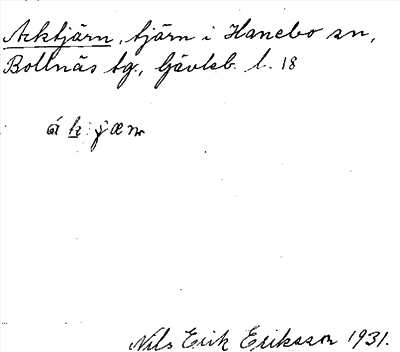 Arktjärn, tjärn i Hanebo sn,
Bollnäs tg., Gävleb. l. 18
Nils Erik Eriksson 1931.